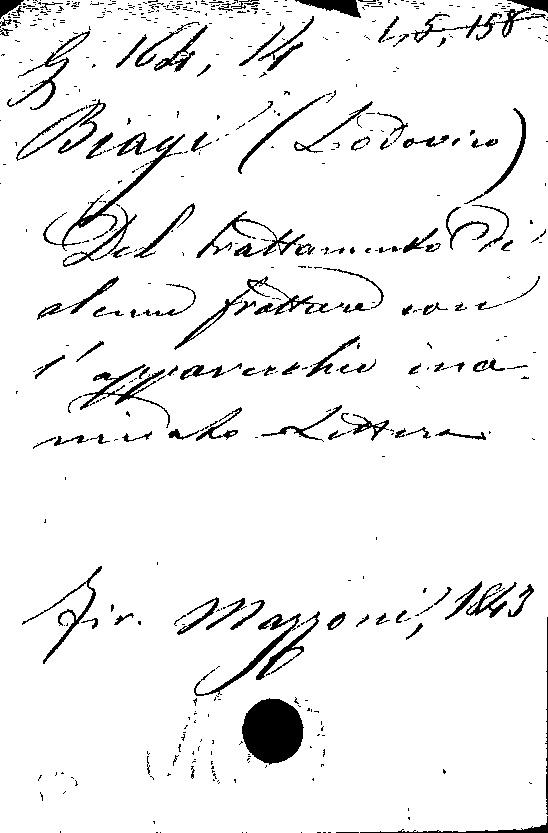 G. 164, 14
1, 5, 158
Biagi (Lodovico)
Del trattamento di
alcune fratture con
l'apparecchio ina-
midato Lettera
Fir. Mazzoni, 1843